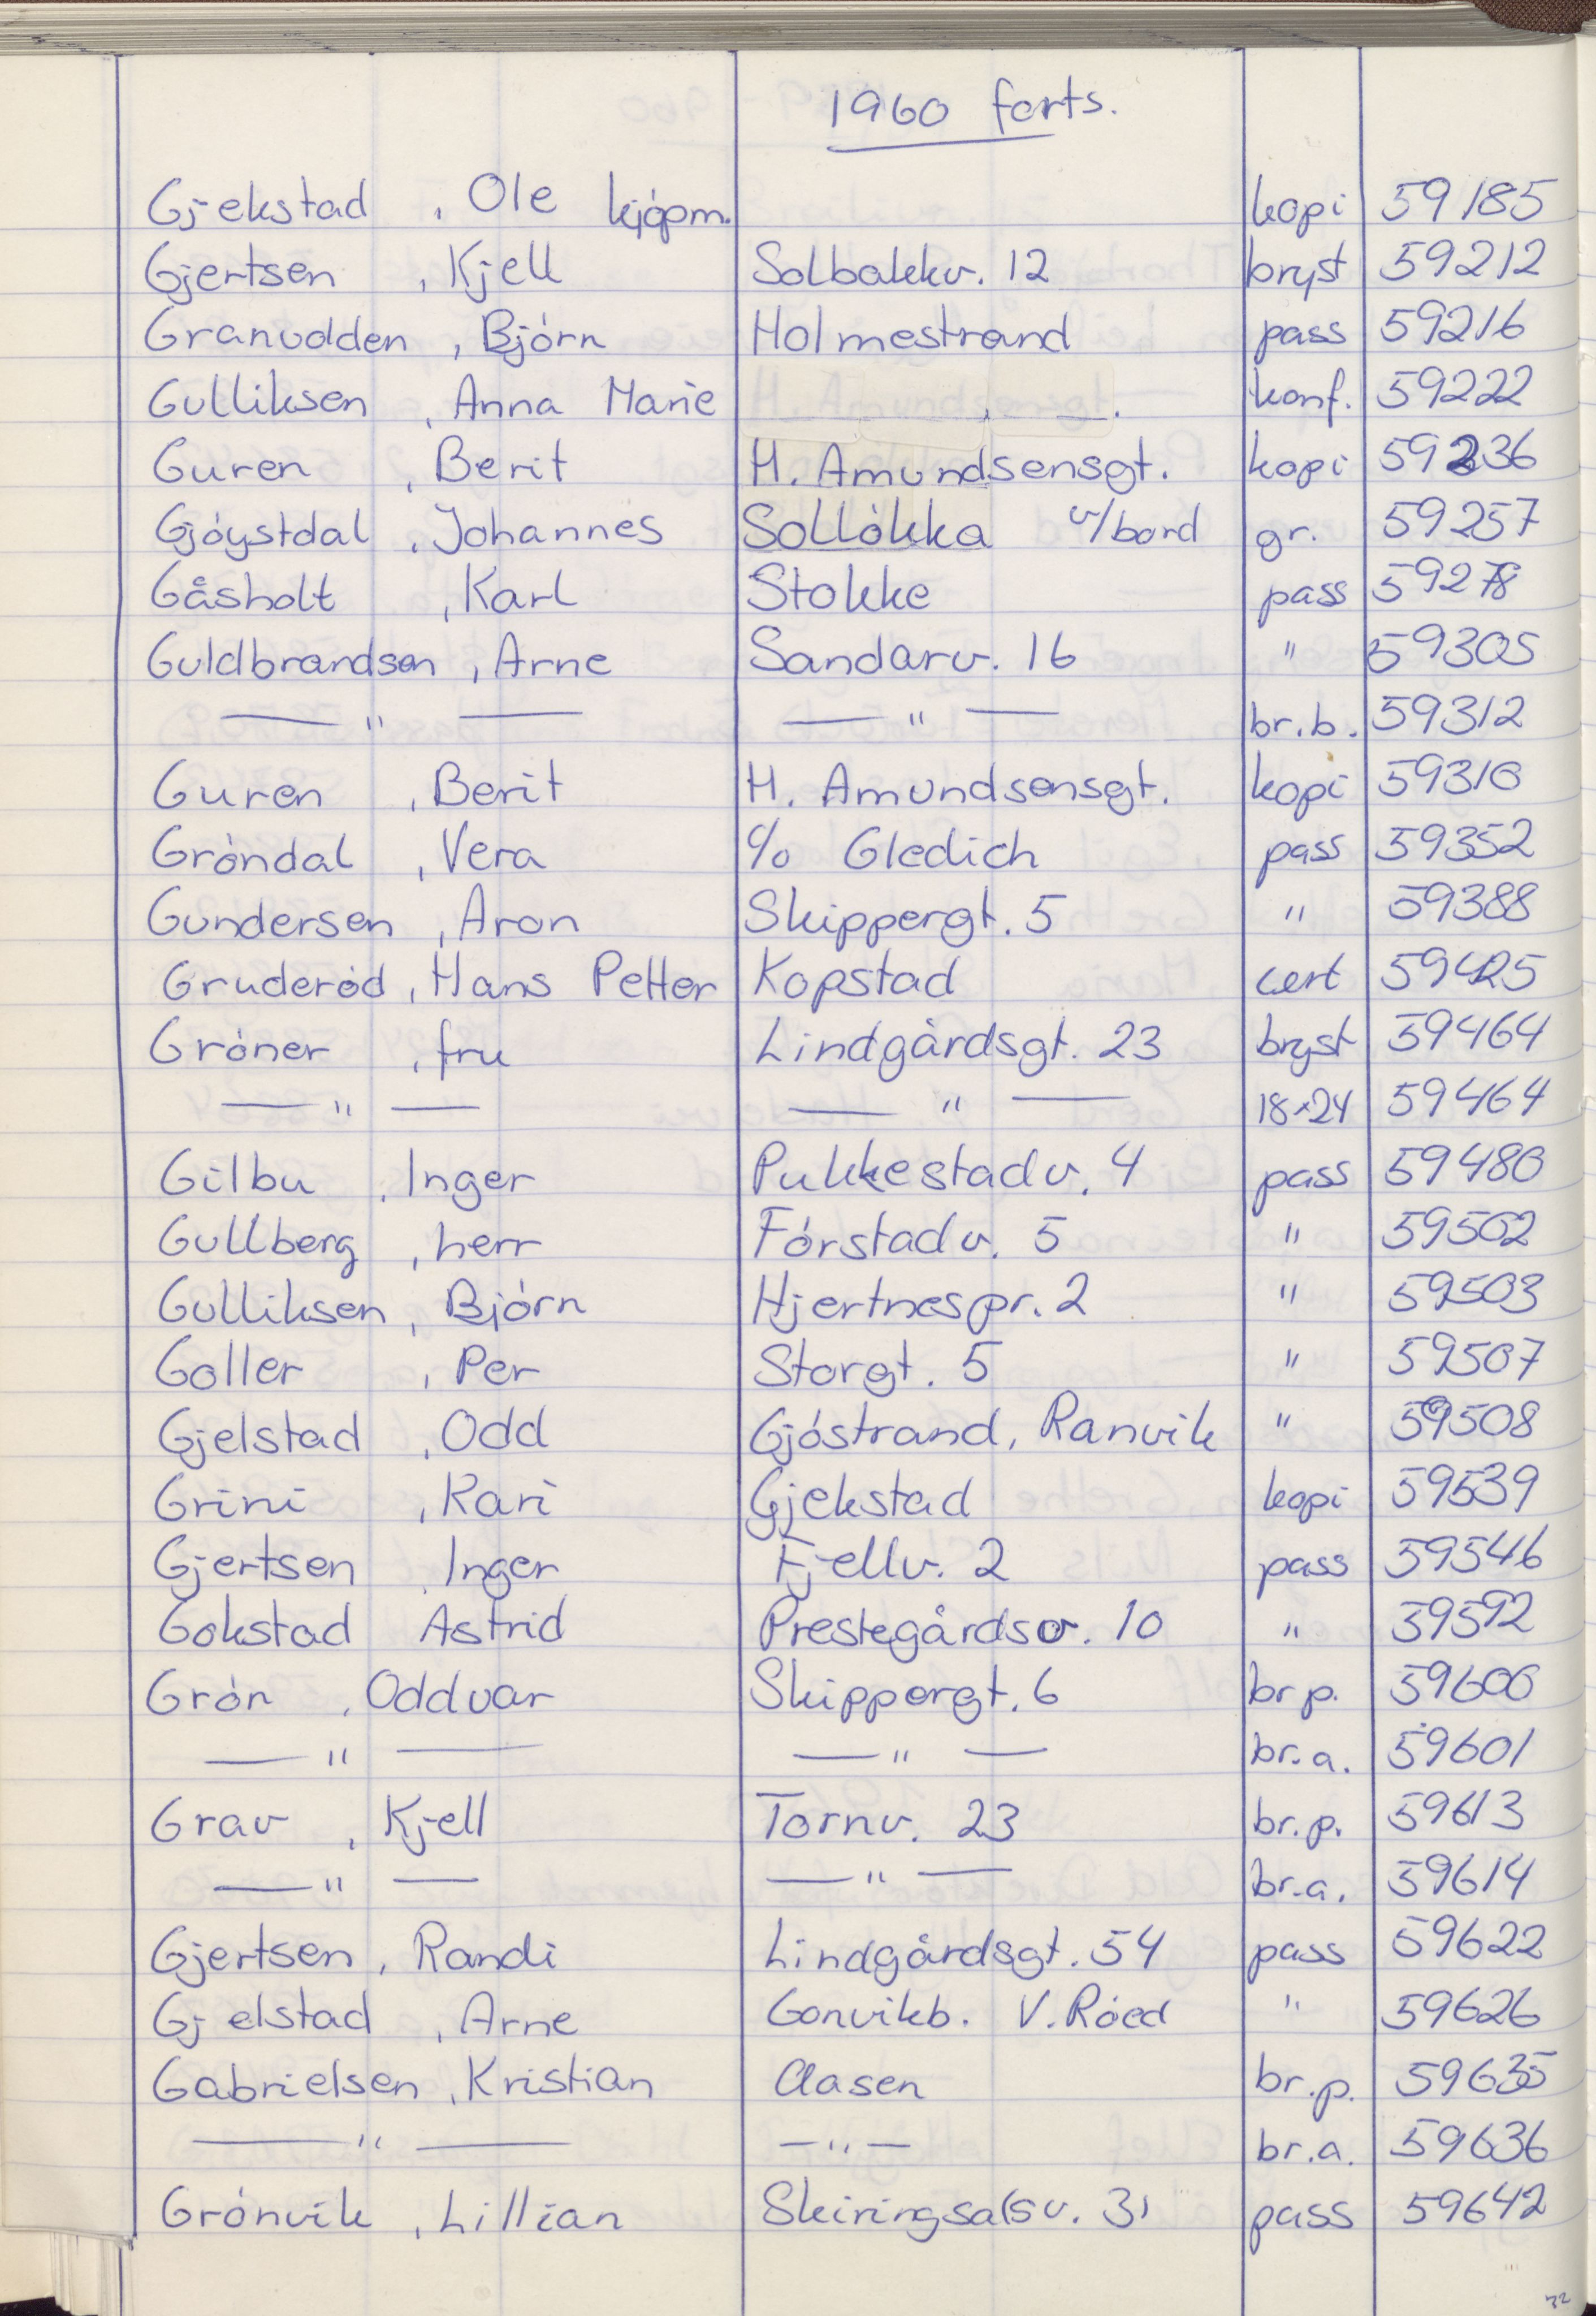 1960 forts.
Gjekstad , Ole kjöpm. kopi 59185
Gjertsen , Kjell Solbakkv. 12 bryst 59212
Granvolden , Björn Holmestrand pass 59216
Gulliksen , Anna Marie konf. 59222
Guren , Berit H. Amundsensgt. kopi 59236
Gjöystdal , Johannes Sollökka v/bord gr. 59257
Gåsholt , Karl Stokke pass 59278
Guldbrandsen , Arne Sandarv. 16 " 59305
— " — — " — br.b. 59312
Guren , Berit H. Amundsensgt. kopi 59310
Gröndal , Vera c/o Gledich pass 59352
Gundersen , Aron Skippergt. 5 " 59388
Gruderöd , Hans Petter Kopstad cert 59425
Gröner , fru Lindgårdsgt. 23 bryst 59464
— " — — " — 18x24 59464
Gilbu , Inger Pukkestadv. 4 pass 59480
Gullberg , herr Förstadv. 5 " 59502
Gulliksen , Björn Hjertnespr. 2 " 59503
Goller , Per Storgt. 5 " 59507
Gjelstad , Odd Gjöstrand, Ranvik " 59508
Grini , Kari Gjekstad kopi 59539
Gjertsen , Inger Fjellv. 2 pass 59546
Gokstad Astrid Prestegårdsv. 10 " 59592
Grön , Oddvar Skippergt. 6 br p. 59600
— " — — " — br.a. 59601
Grav , Kjell Tornv. 23 br.p. 59613
— " — — " — br.a. 59614
Gjertsen , Randi Lindgårdsgt. 54 pass 59622
Gjelstad , Arne Gonvikb. V. Röed " 59626
Gabrielsen , Kristian Aasen br.p. 59635
— " — — " — br.a. 59636
Grönvik , Lillian Skiringsalsv. 31 pass 59642